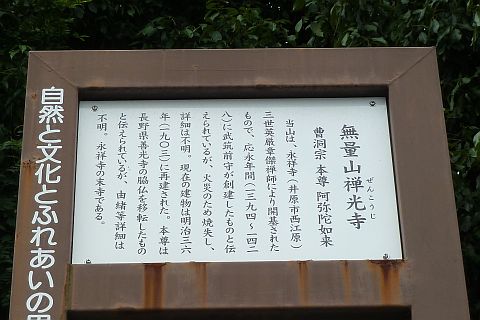 無量山禅光寺
ぜんこうじ
曹洞宗 本尊 阿弥陀如来
当山は、永祥寺(井原市西江原)
三世英巌章傑禅師により開基された
もので、応永年間(一三九四～一四二
八)に武筑前守が創建したものと伝
えられているが、火災のため焼失し、
詳細は不明。現在の建物は明治三六
年(一九〇三)に再建された。本尊は
長野県善光寺の脇仏を移転したもの
と伝えられているが、由緒等詳細は
不明。永祥寺の末寺である。
自然と文化とふれあいの